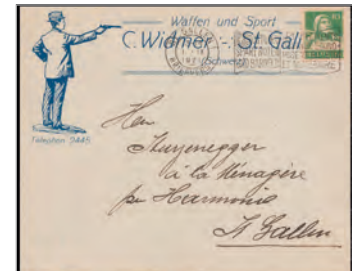 Waffen und Sport
C. Widmer St. Gall
(Schweiz)
Telephon 2445
Herr
Sturzenegger
à la Ménagère
pr Harmonie
St Gallen